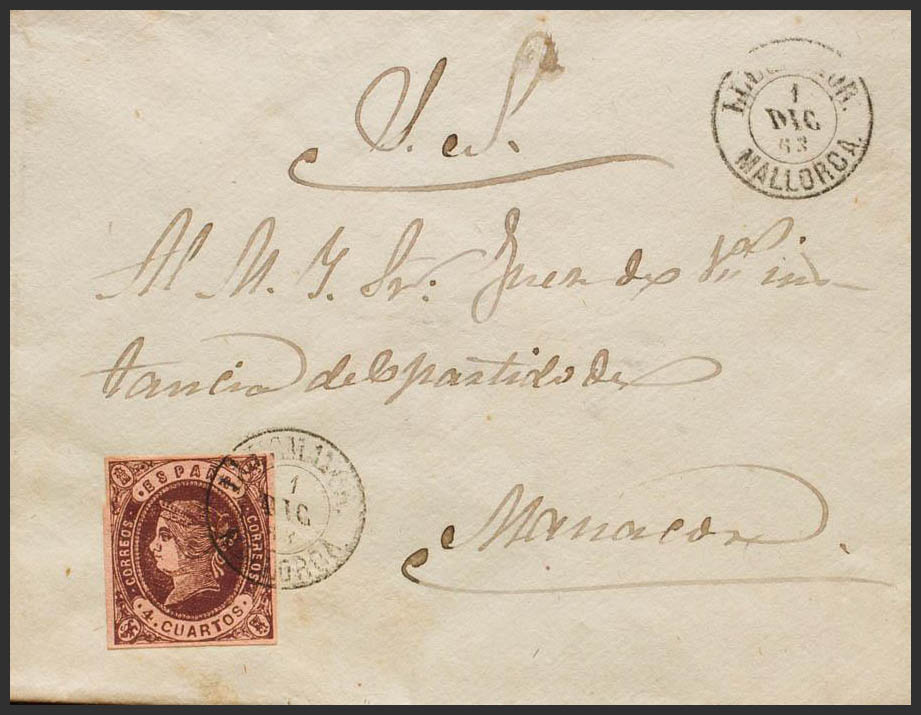 S. N.
1
DIC
63
MALLORCA.
Al M. Y. Sr. Juez de 1ra. ins-
tancia del partido de
Manacor.
ESPAÑA
CORREOS.
CORREOS.
4. CUARTOS.
1
DIC